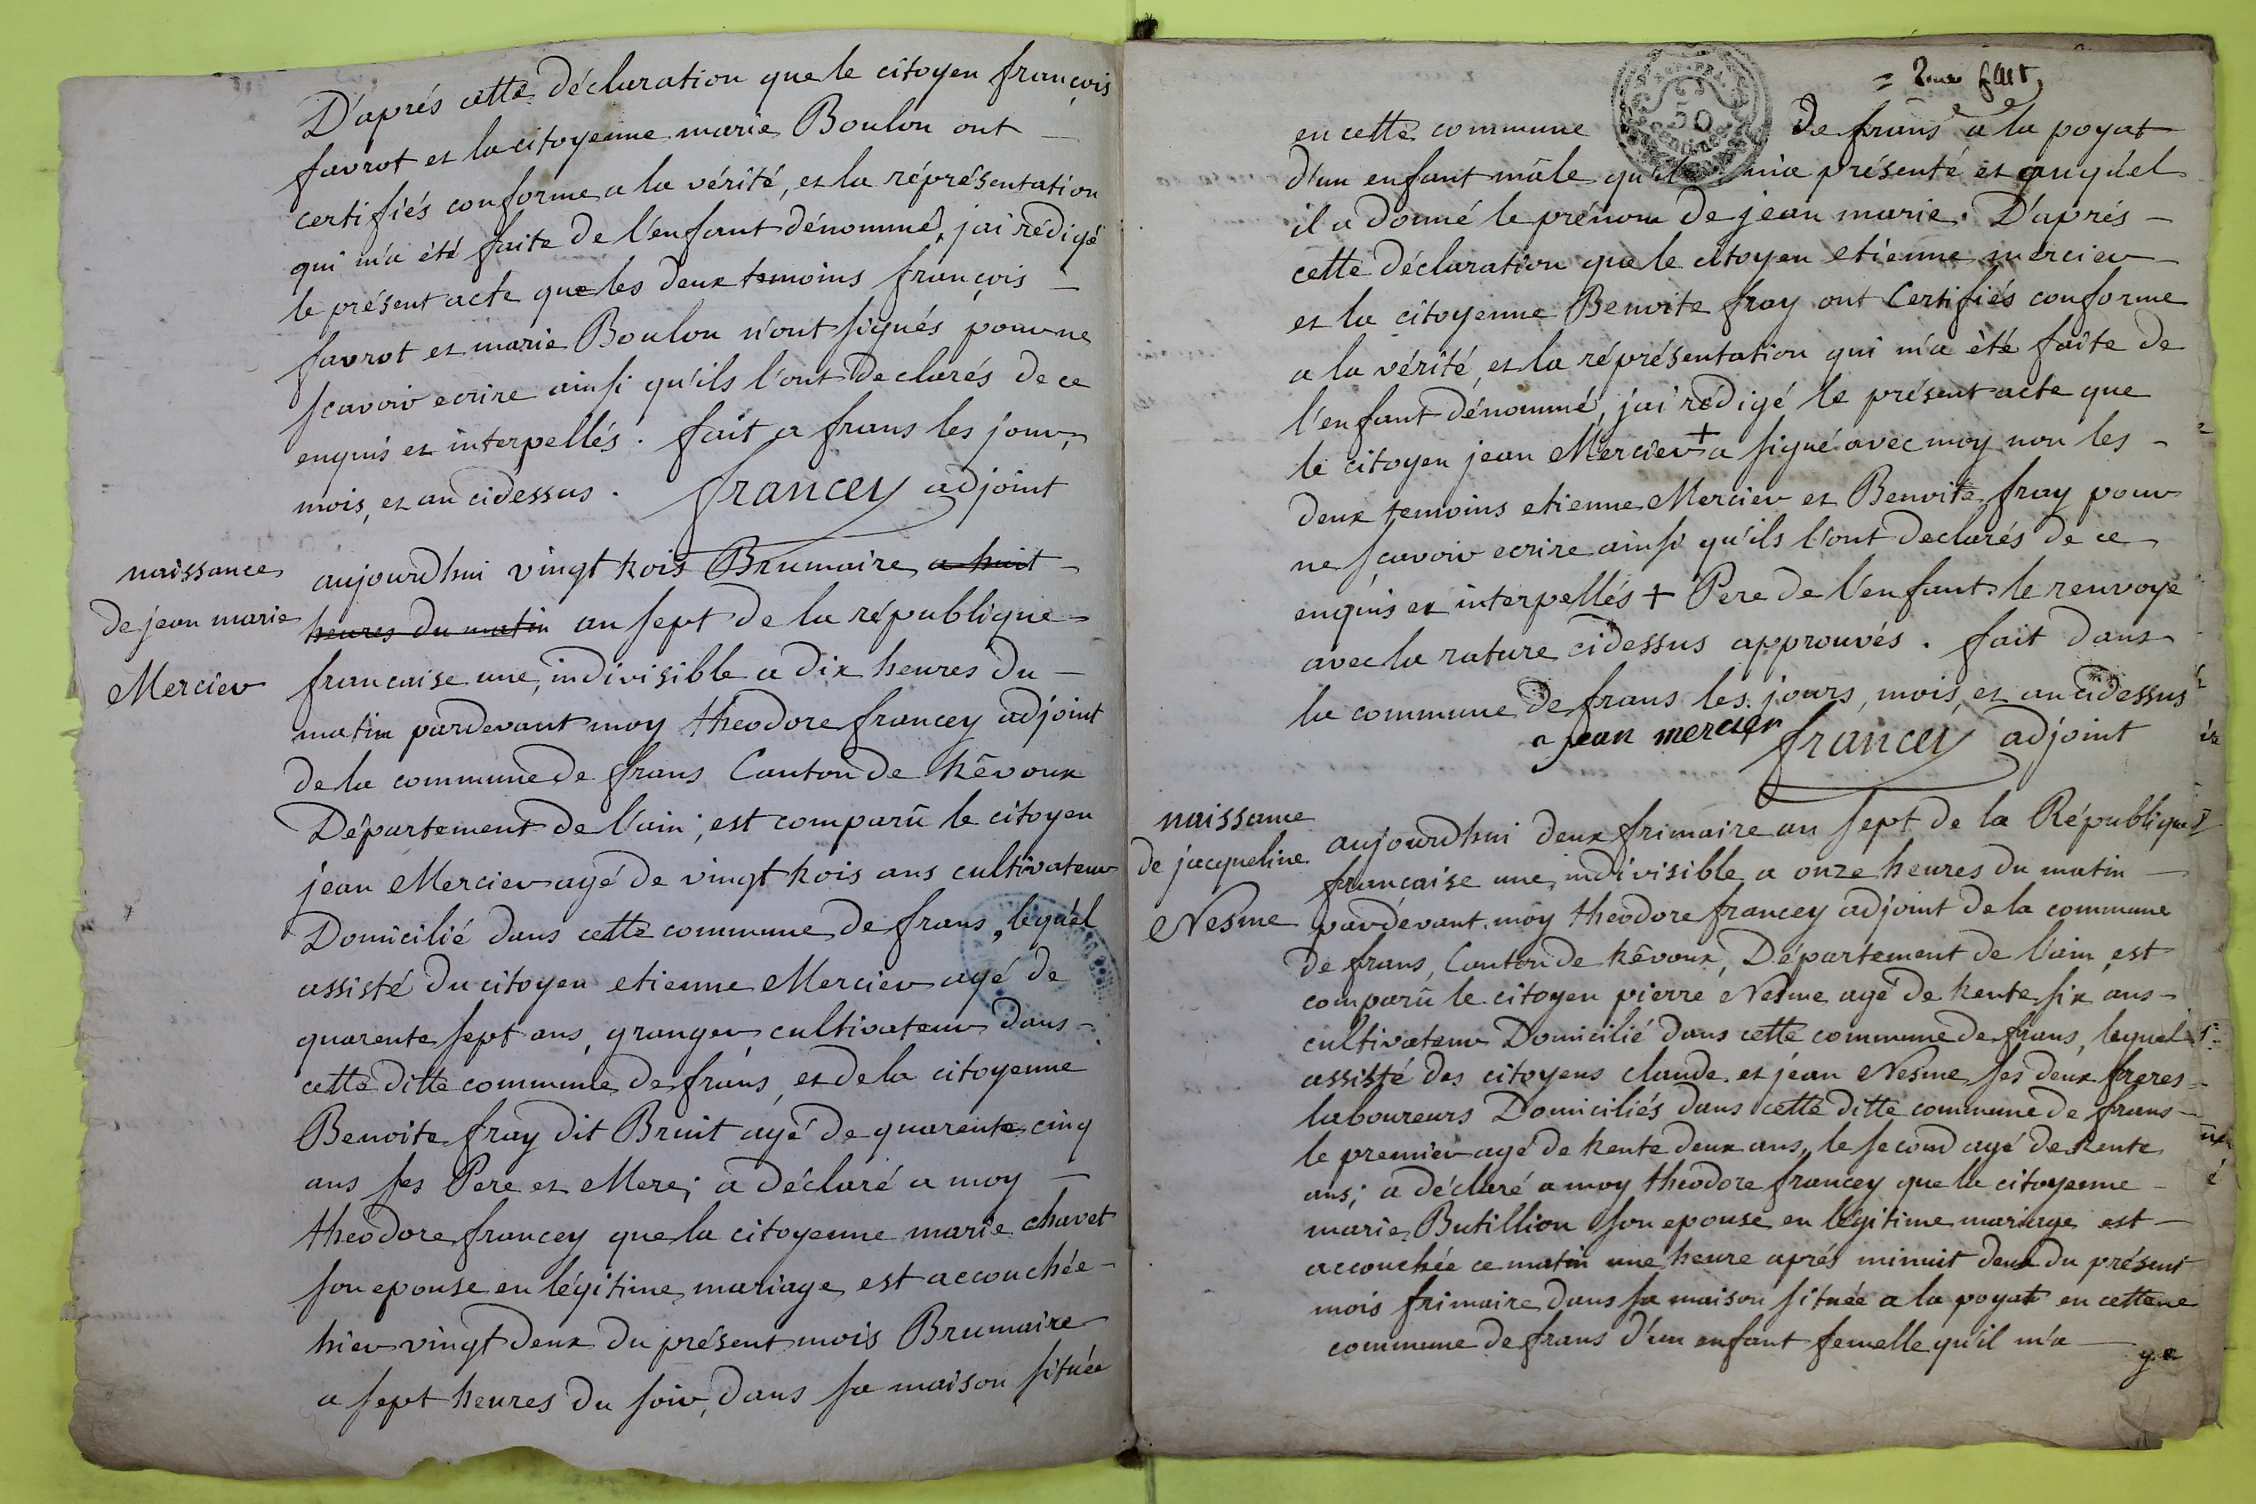 D'aprés cette déclaration que le citoyen françois
favrot et la citoyenne marie Boulon ont
certifiés conforme a la vérité, et la réprésentation
qui m'a été faite de l'enfant dénommé, j'ai rédigé
le présent acte que les deux temoins françois
favrot et marie Boulon n'ont signés pour ne
scavoir ecrire ainsi qu'ils l'ont declarés de ce
enquis et interpellés. fait a frans les jour,
mois, et an cidessus. francey adjoint
naissance
de jean marie
Mercier
aujourd'hui vingt trois Brumaire a huit
heures du matin an sept de la république
francaise une, indivisible a dix heures du
matin pardevant moy theodore francey adjoint
de la commune de frans Canton de trêvoux
Département de l'ain; est comparû le citoyen
jean Mercier agé de vingt trois ans cultivateur
Domicilié dans cette commune de frans, lequel
assisté du citoyen etienne Mercier agé de
quarente sept ans, granger cultivateur dans
cette ditte commune de frans, et de la citoyenne
Benoite fray dit Bruit agé de quarente cinq
ans ses Pere et Mere; a déclaré a moy
theodore francey que la citoyenne marie chavet
son epouse en légitime mariage est accouchée
hier vingt deux du présent mois Brumaire
a sept heures du soir, dans sa maison située
50
en cette commune de frans a la poyat
d'un enfant mâle qu'il m'a présenté et auquel
il a donné le prénom de jean marie. D'aprés
cette déclaration que le citoyen etienne mercier
et la citoyenne Benoite fray ont Certifiés conforme
a la vérité, et la réprésentation qui m'a été faite de
l'enfant dénommé, j'ai rédigé le présent acte que
le citoyen jean Mercier + a signé avec moy non les
deux temoins etienne Mercier et Benoite fray pour
ne scavoir ecrire ainsi qu'ils l'ont declarés de ce
enquis et interpellés + Pere de l'enfant le renvoye
avec la rature cidessus approuvés. fait dans
la commune de frans les jours, mois, et an cidessus
jean mercier francey adjoint
naissance
de jacqueline
Nesme
aujourd'hui deux frimaire an sept de la République
francaise une, indivisible a onze heures du matin
pardevant moy theodore francey adjoint de la commune
de frans, Canton de trêvoux, Département de l'ain est
comparû le citoyen pierre Nesme agé de trente six ans
cultivateur Domicilié dans cette commune de frans, lequel
assisté des citoyens claude et jean Nesme ses deux freres
laboureurs Domiciliés dans cette ditte commune de frans
le premier agé de trente deux ans, le second agé de trente
ans; a déclaré a moy theodore francey que la citoyenne
marie Butillion son epouse en légitime mariage est
accouchée ce matin une heure aprés minuit deux du présent
mois frimaire dans sa maison située a la poyat en cette
commune de frans d'un enfant femelle qu'il m'a